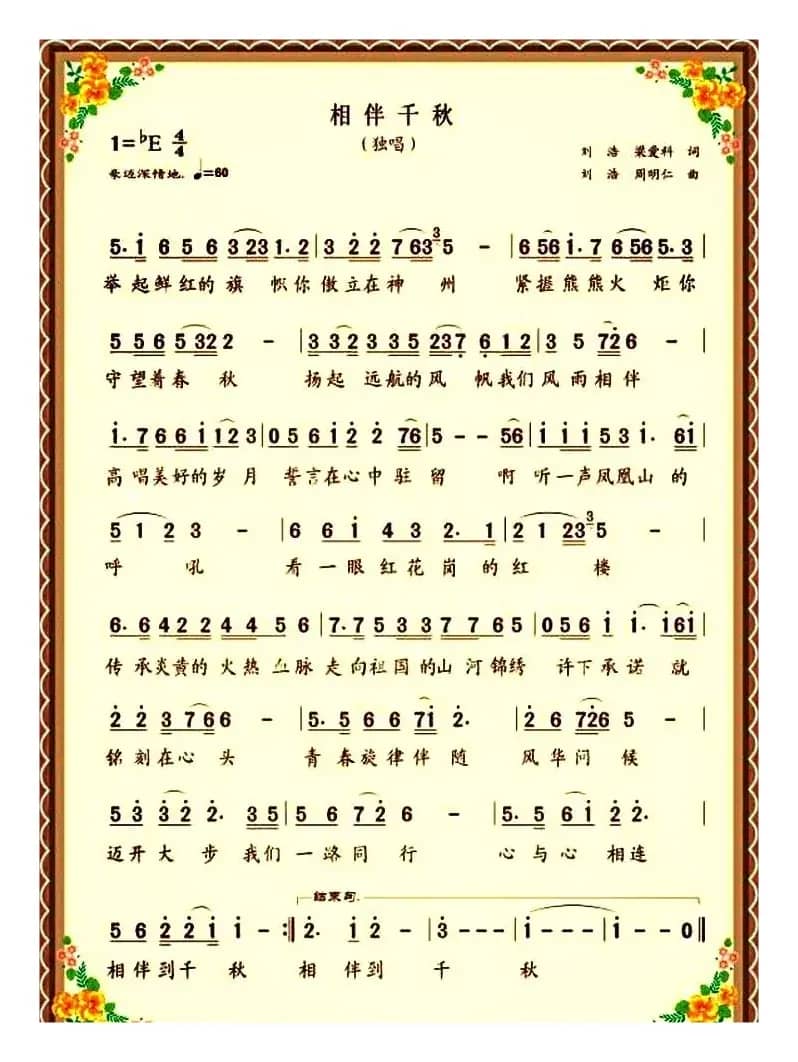 相伴千秋
（独唱）
1=♭E 4/4
豪迈深情地. ♩=60
刘 浩 梁爱科 词
刘 浩 周明仁 曲
5. 1 6 5 6 3 23 1. 2 | 3 2 2 7 63 3 5 - | 6 56 1. 7 6 56 5. 3 |
举起鲜红的旗 帜你傲立在神 州 紧握熊熊火 炬你
5 5 6 5 32 2 - | 3 3 2 3 3 5 237 6 1 2 | 3 5 7 2 6 - |
守望着春 秋 扬起 远航的风 帆我们风雨相伴
1. 7 6 6 1 1 2 3 | 0 5 6 1 2 2 76 | 5 - - 56 | 1 1 1 5 3 1. 61 |
高唱美好的岁 月 誓言在心中驻 留 啊 听一声凤凰山的
5 1 2 3 - | 6 6 1 4 3 2. 1 | 2 1 23 3 5 - |
呼 吼 看一眼红花岗的红 楼
6. 6 4 2 2 4 4 5 6 | 7. 7 5 3 3 7 7 6 5 | 0 5 6 1 1. 1 6 1 |
传承炎黄的火热血脉走向祖国的山河锦绣 许下承诺就
2 2 3 7 6 6 - | 5. 5 6 6 7 1 2. | 2 6 7 2 6 5 - |
铭刻在心头 青春旋律伴随 风华问候
5 3 3 2 2. 3 5 | 5 6 7 2 6 - | 5. 5 6 1 2 2. |
迈开大步我们一路同行 心与心相连
结束句.
5 6 2 2 1 1 - :‖ 2. 1 2 - | 3 - - - | 1 - - - | 1 - - 0 ‖
相伴到千 秋 相 伴到 千 秋